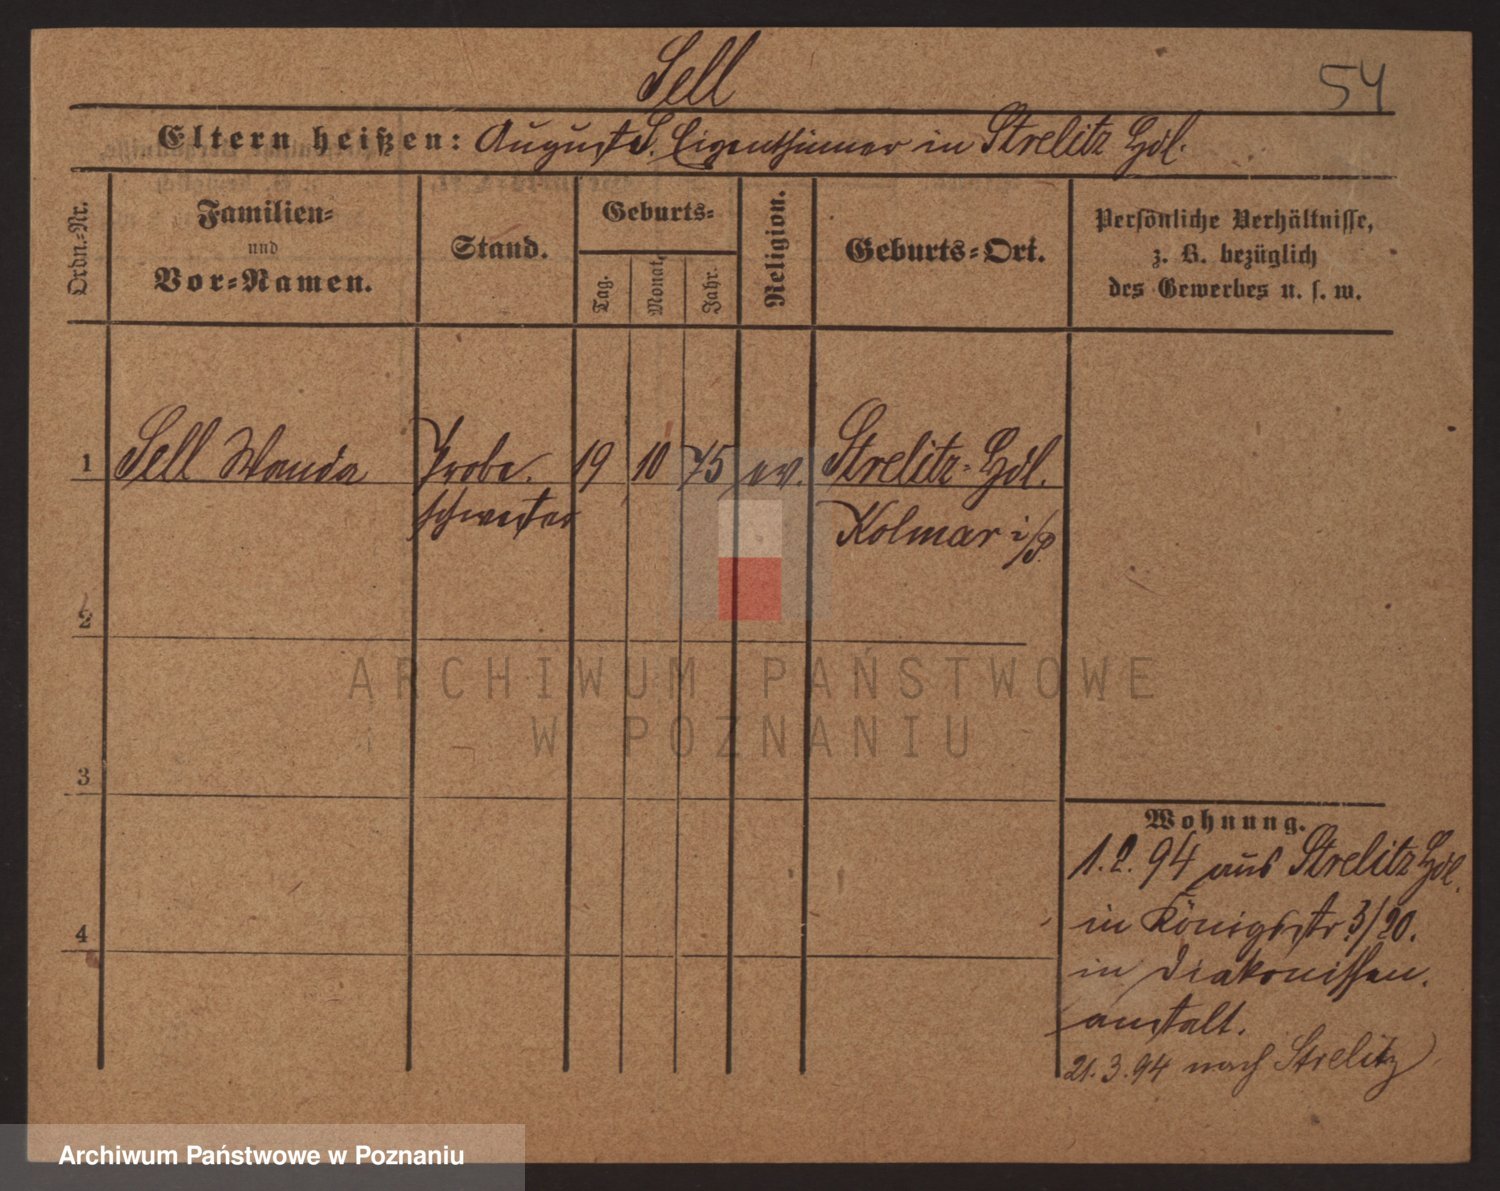 Sell
54
Eltern heißen: August S. Eigenthümer in Strelitz Hdl.
Ordn.-Nr.
Familien-
und
Vor-Namen.
Stand.
Geburts-
Tag.
Monat.
Jahr.
Religion.
Geburts-Ort.
Persönliche Verhältnisse,
z. B. bezüglich
des Gewerbes u. s. w.
1 Sell Wanda Probe- 19 10 75 ev. Strelitz-Hdl.
schwester Kolmar i/P.
2
ARCHIWUM PAŃSTWOWE
W POZNANIU
3
Wohnung.
1.2.94 aus Strelitz Hdl.
in Königsstr 3/20.
4
in Diakonissen-
anstalt.
21.3.94 nach Strelitz
Archiwum Państwowe w Poznaniu